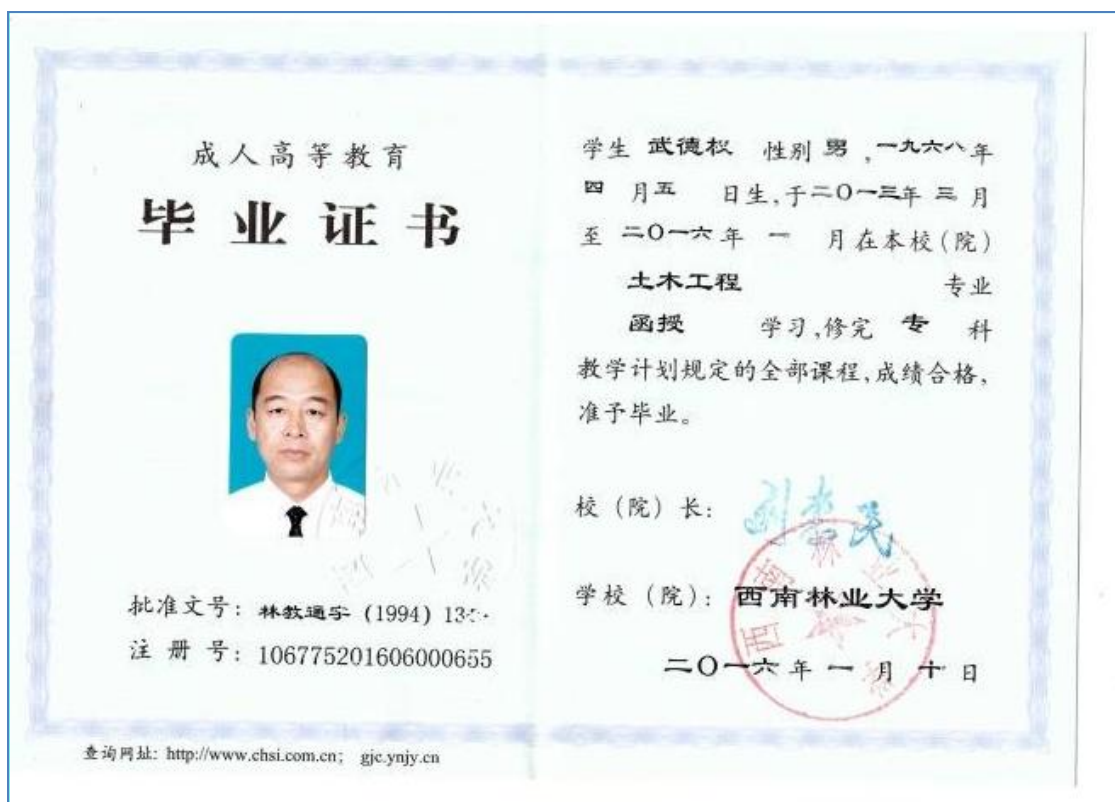 成人高等教育
毕业证书
批准文号：林教通字（1994）13
注册号：106775201606000655
查询网址：http://www.chsi.com.cn； gjc.ynjy.cn
学生 武德权 性别 男，一九六八年
四 月五 日生，于二〇一三年 三 月
至 二〇一六年 一 月在本校（院）
土木工程 专业
函授 学习，修完 专 科
教学计划规定的全部课程，成绩合格，
准予毕业。
校（院）长：
学校（院）：西南林业大学
二〇一六年 一 月 十 日
西南林业大学